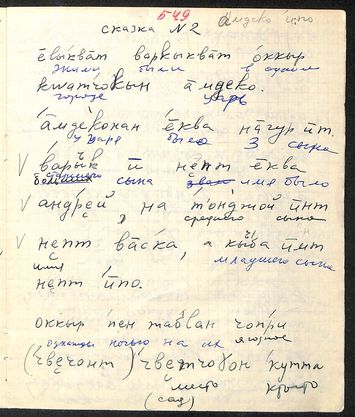 549 а̄мдеко ӣпо
сказка N 2
ёвыкват варкыкват о́ккыр
жили были в одном
кwатчо́кын а̄мде́ко.
городе царь
а̄мде́конан ёква на́гур ӣт.
у царя было 3 сына
V ва́рык ӣ не́пт ёква
старшего сына имя было
V андре́й, на то́нджой ӣнт
среднего сына
V непт ва̄ска, а кы́ба ӣмт
имя младшего сына
непт ӣпо.
оккыр пен табван чопри
однажды ночью на их ягодное
(чве́чонт) чветчо́он кутта
место кто-то
(сад)